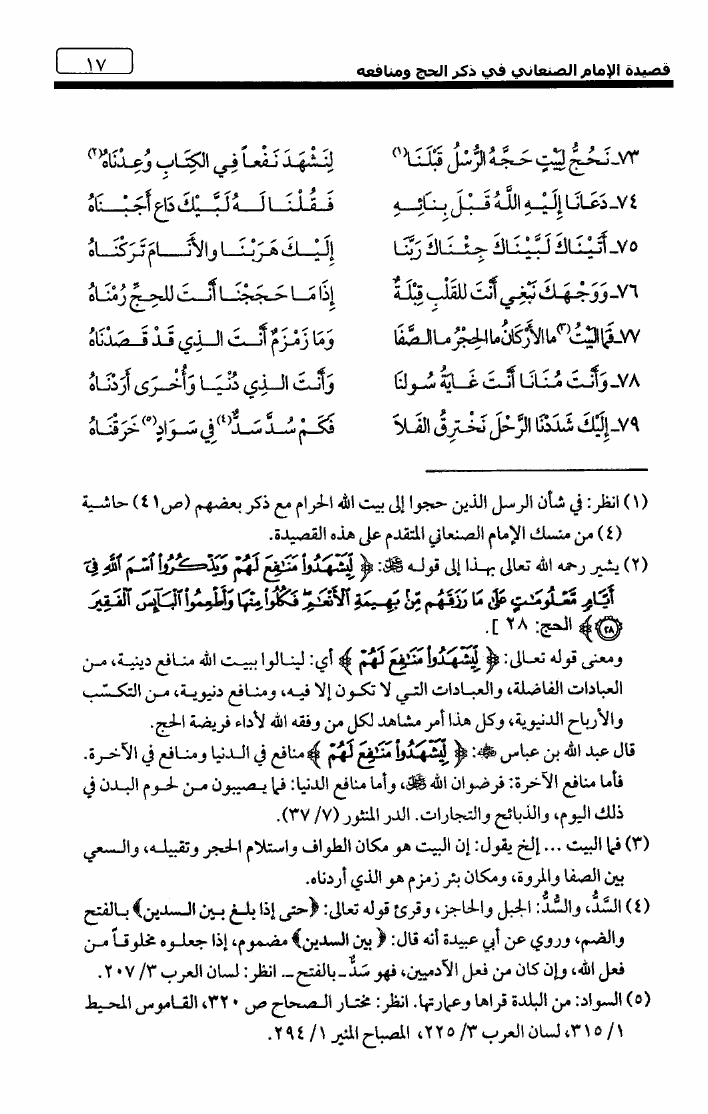 قصيدة الإمام الصنعاني في ذكر الحج ومنافعه ١٧
٧٣ـ نَحُجُّ لِبَيْتٍ حَجَّهُ الرُّسْلُ قَبْلَنَا(١) لِنَشْهَدَ نَفْعاً فِي الكِتَابِ وُعِدْنَاهُ(٢)
٧٤ـ دَعَانَا إِلَيْهِ اللَّهُ قَبْلَ بِنَائِهِ فَقُلْنَا لَهُ لَبَّيْكَ دَاعٍ أَجَبْنَاهُ
٧٥ـ أَتَيْنَاكَ لَبَّيْنَاكَ جِئْنَاكَ رَبَّنَا إِلَيْكَ هَرَبْنَا والأَنَامَ تَرَكْنَاهُ
٧٦ـ وَوَجْهَكَ نَبْغِي أَنْتَ للقَلْبِ قِبْلَةٌ إِذَا مَا حَجَجْنَا أَنْتَ للحِجِّ رُمْنَاهُ
٧٧ـ فَمَا البَيْتُ(٣) ما الأَرْكَانُ ما الحِجْرُ ما الصَّفَا وَمَا زَمْزَمٌ أَنْتَ الَّذِي قَدْ قَصَدْنَاهُ
٧٨ـ وَأَنْتَ مُنَانَا أَنْتَ غَايَةُ سُولِنَا وَأَنْتَ الَّذِي دُنْيَا وَأُخْرَى أَرَدْنَاهُ
٧٩ـ إِلَيْكَ شَدَدْنَا الرَّحْلَ نَخْتَرِقُ الفَلَا فَكَمْ سُدَّ سَدٌّ(٤) فِي سَوَادٍ(٥) خَرَقْنَاهُ
(١) انظر: في شأن الرسل الذين حجوا إلى بيت الله الحرام مع ذكر بعضهم (ص٤١) حاشية
(٤) من منسك الإمام الصنعاني المتقدم على هذه القصيدة.
(٢) يشير رحمه الله تعالى بهذا إلى قوله ﷻ: ﴿ لِّيَشْهَدُواْ مَنَٰفِعَ لَهُمْ وَيَذْكُرُواْ ٱسْمَ ٱللَّهِ فِىٓ
أَيَّامٍ مَّعْلُومَٰتٍ عَلَىٰ مَا رَزَقَهُم مِّنۢ بَهِيمَةِ ٱلْأَنْعَٰمِ ۖ فَكُلُواْ مِنْهَا وَأَطْعِمُواْ ٱلْبَآئِسَ ٱلْفَقِيرَ
٢٨﴾ الحج: ٢٨ ].
ومعنى قوله تعالى: ﴿ لِّيَشْهَدُواْ مَنَٰفِعَ لَهُمْ ﴾ أي: لينالوا ببيت الله منافع دينية، من
العبادات الفاضلة، والعبادات التي لا تكون إلا فيه، ومنافع دنيوية، من التكسّب
والأرباح الدنيوية، وكل هذا أمر مشاهد لكل من وفقه الله لأداء فريضة الحج.
قال عبد الله بن عباس: ﴿ لِّيَشْهَدُواْ مَنَٰفِعَ لَهُمْ ﴾ منافع في الدنيا ومنافع في الآخرة.
فأما منافع الآخرة: فرضوان الله ﷻ، وأما منافع الدنيا: فما يصيبون من لحوم البدن في
ذلك اليوم، والذبائح والتجارات. الدر المنثور (٧/ ٣٧).
(٣) فما البيت ... إلخ يقول: إن البيت هو مكان الطواف واستلام الحجر وتقبيله، والسعي
بين الصفا والمروة، ومكان بئر زمزم هو الذي أردناه.
(٤) السَّدُّ، والسُّدُّ: الجبل والحاجز، وقرئ قوله تعالى: ﴿حتى إذا بلغ بين السدين﴾ بالفتح
والضم، وروي عن أبي عبيدة أنه قال: ﴿ بين السدين﴾ مضموم، إذا جعلوه مخلوقاً من
فعل الله، وإن كان من فعل الآدميين، فهو سَدٌّ ـ بالفتح ـ. انظر: لسان العرب ٣/ ٢٠٧.
(٥) السواد: من البلدة قراها وعمارتها. انظر: مختار الصحاح ص ٣٢٠، القاموس المحيط
١/ ٣١٥، لسان العرب ٣/ ٢٢٥، المصباح المنير ١/ ٢٩٤.